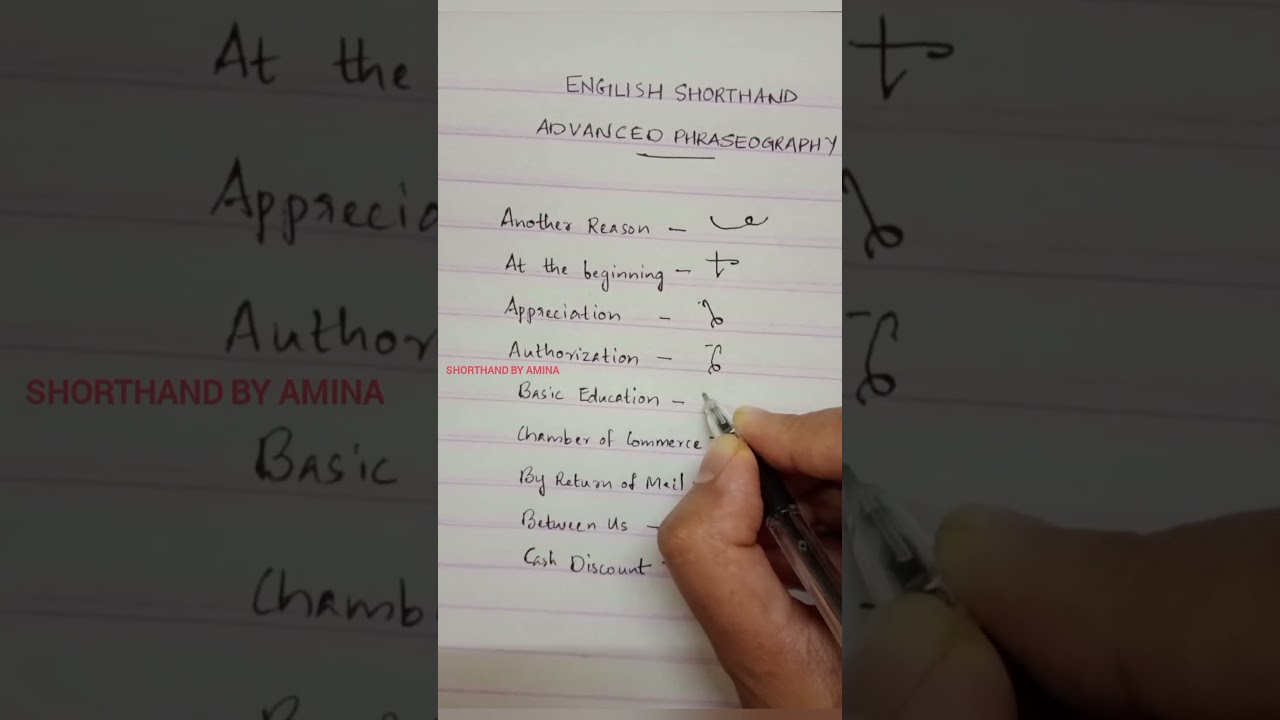 ENGILISH SHORTHAND
ADVANCED PHRASEOGRAPHY
Another Reason –
At the beginning –
Appreciation –
Authorization –
SHORTHAND BY AMINA
Basic Education –
Chamber of Commerce -
By Return of Mail -
Between Us –
Cash Discount -
At the
Apprecia
Author
SHORTHAND BY AMINA
Basic
Chamb